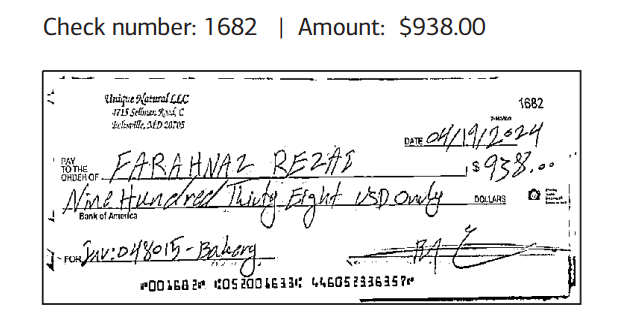 Check number: 1682 | Amount: $938.00
Unique Natural LLC
4715 Sellman Road, C
Beltsville, MD 20705
1682
DATE 04/19/2024
PAY TO THE ORDER OF FARAHNAZ REZAI $938.00
Nine Hundred Thirty Eight USD Only DOLLARS
Bank of America
FOR Inv:048015-Bakery
⑈001682⑈ ⑆052001633⑆ 446052336357⑈